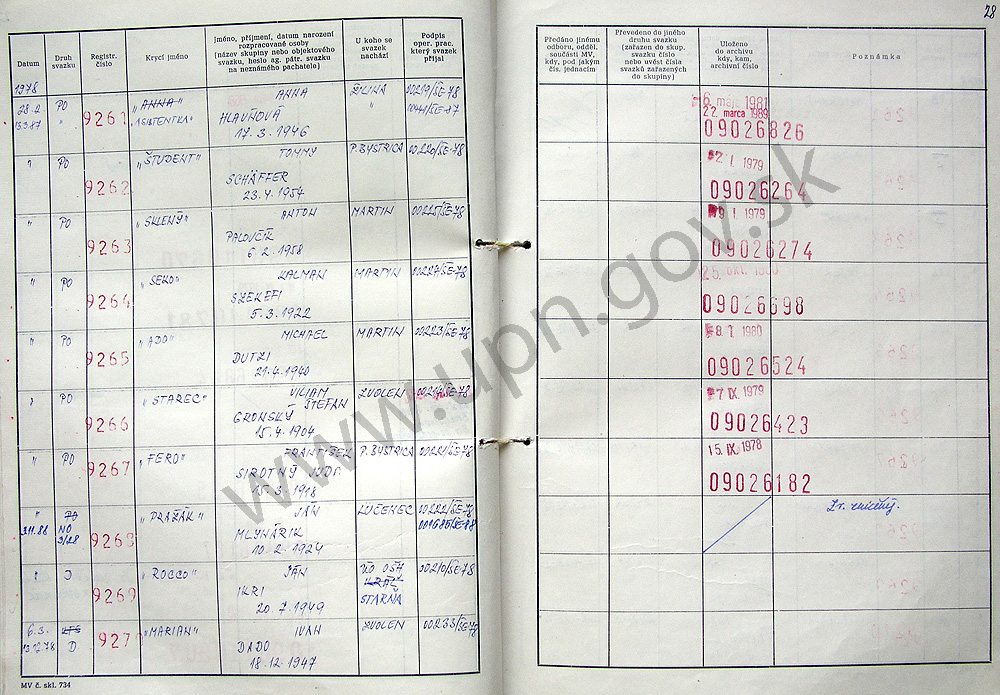 28
Datum
Druh
svazku
Registr.
číslo
Krycí jméno
Jméno, příjmení, datum narození
rozpracované osoby
(název skupiny nebo objektového
svazku, heslo ag. pátr. svazku
na neznámého pachatele)
U koho se
svazek
nachází
Podpis
oper. prac.
který svazek
přijal
Předáno jinému
odboru, odděl.
součásti MV,
kdy, pod jakým
čís. jednacím
Převedeno do jiného
druhu svazku
(zařazen do skup.
svazku číslo
nebo uvést čísla
svazků zařazených
do skupiny)
Uloženo
do archivu
kdy, kam,
archivní číslo
Poznámka
1978
28.2 PO 9261 "ANNA" ANNA ŽILINA 00219/ŠE-78
13.3.87 " "ASISTENTKA" HLAVŇOVÁ " 0041/ŠE-87
17.3.1946
6. máj 1981
22. marca 1989
09026826
" PO 9262 "ŠTUDENT" TOMMY P. BYSTRICA 00220/ŠE-78
SCHÄFFER
23.4.1954
2. I. 1979
09026264
" PO 9263 "SKLENÝ" ANTON MARTIN 00225/ŠE-78
PALOVČÍK
6.2.1958
9. I. 1979
09026274
" PO 9264 "SEKO" KALMAN MARTIN 00227/ŠE-78
SZEKEFI
5.3.1922
25. okt. 1980
09026698
" PO 9265 "ADO" MICHAEL MARTIN 00223/ŠE-78
DUTZI
21.4.1940
8. I. 1980
09026524
" PO 9266 "STAREC" VILIAM ZVOLEN 00214/ŠE-78
ŠTEFAN
GRONSKÝ
15.4.1904
7. IX. 1979
09026423
" PO 9267 "FERO" FRANTIŠEK P. BYSTRICA 00221/ŠE-78
SIROTNÝ JUDr.
15.3.1918
15. IX. 1978
09026182
" PO 9268 "PRAŽÁK" JÁN LUČENEC 00222/ŠE-78
3.11.88 NO MLYNÁRIK 001685/ŠE-88
3/28 10.2.1924
Zv. zničený.
" D 9269 "ROCCO" JÁN 00210/ŠE-78
IKRI
20.7.1949 STARŇA
6.3. 927 "MARIAN" IVAN ZVOLEN 00233/ŠE-78
13.12.78 D DADO
18.12.1947
MV č. skl. 734
www.upn.gov.sk